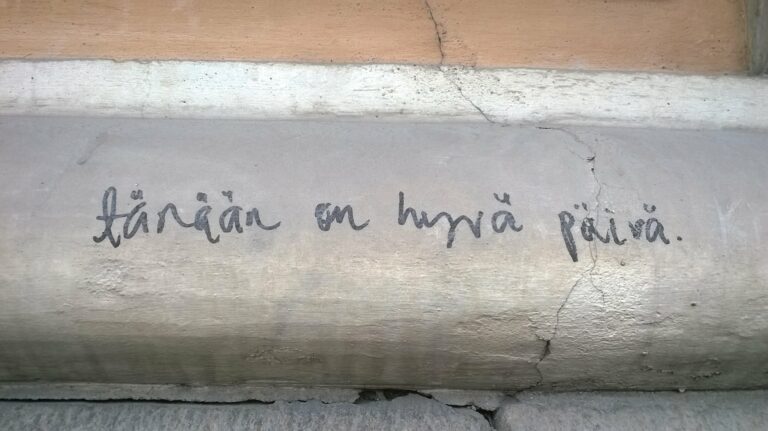 tänään on hyvä päivä.